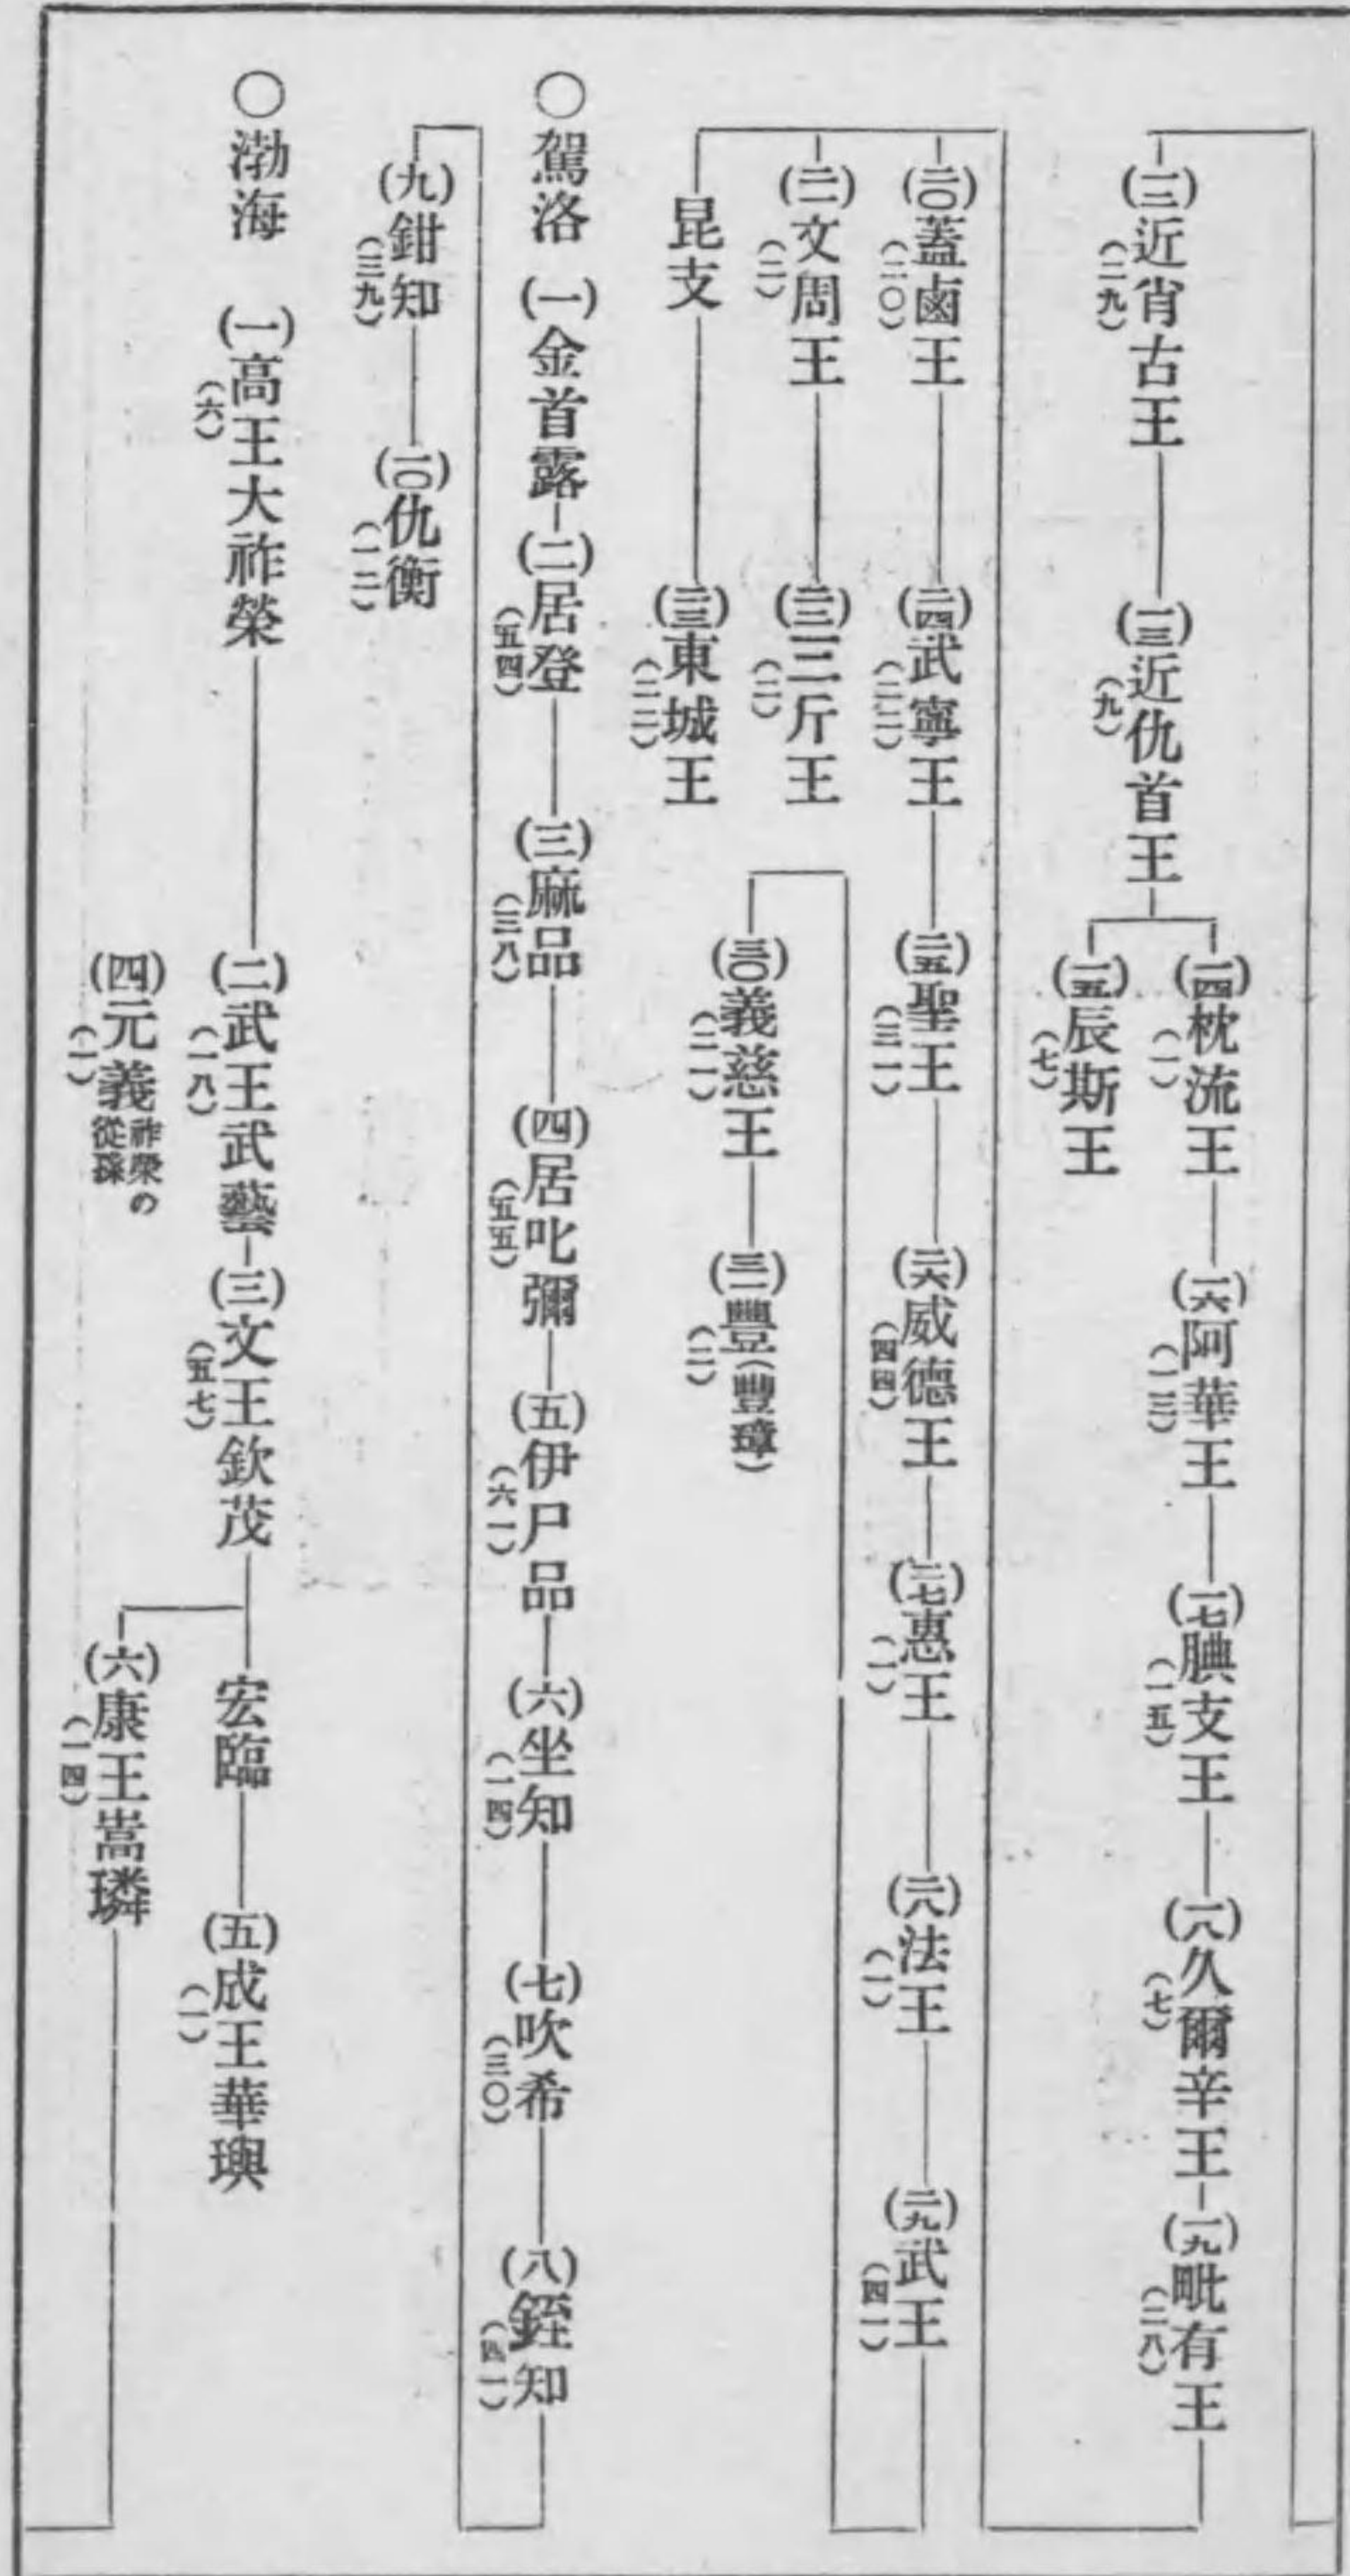 (一三)近肖古王
(二九)
(一三)近仇首王
(九)
(一四)枕流王
(一)
(一六)阿華王
(一三)
(一七)腆支王
(一五)
(一八)久爾辛王
(七)
(一九)毗有王
(二八)
(一五)辰斯王
(七)
(二〇)蓋鹵王
(二〇)
(二四)武寧王
(二二)
(二五)聖王
(三一)
(二六)威德王
(四四)
(二七)惠王
(一)
(二八)法王
(一)
(二九)武王
(四一)
(二一)文周王
(二)
(二三)三斤王
(二)
昆支
(二三)東城王
(二二)
(三〇)義慈王
(二一)
(三一)豐(豐璋)
(二)
○駕洛
(一)金首露
(二)居登
(五四)
(三)麻品
(三八)
(四)居叱彌
(五五)
(五)伊尸品
(六一)
(六)坐知
(一四)
(七)吹希
(三〇)
(八)銍知
(四一)
(九)鉗知
(三九)
(一〇)仇衡
(一二)
○渤海
(一)高王大祚榮
(六)
(二)武王武藝
(一八)
(三)文王欽茂
(五七)
宏臨
(五)成王華璵
(一)
(四)元義
祚榮の
從孫
(一)
(六)康王嵩璘
(一四)